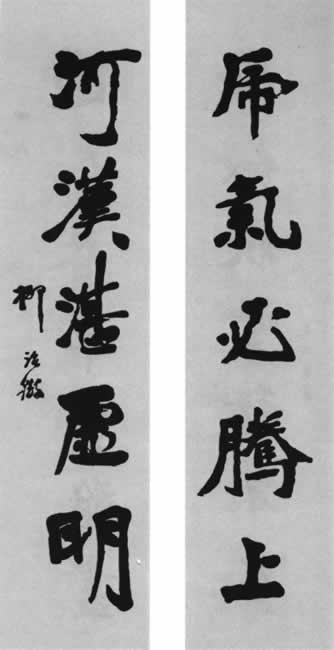 帍氣必騰上
河漢湛虛明
柳詒徵